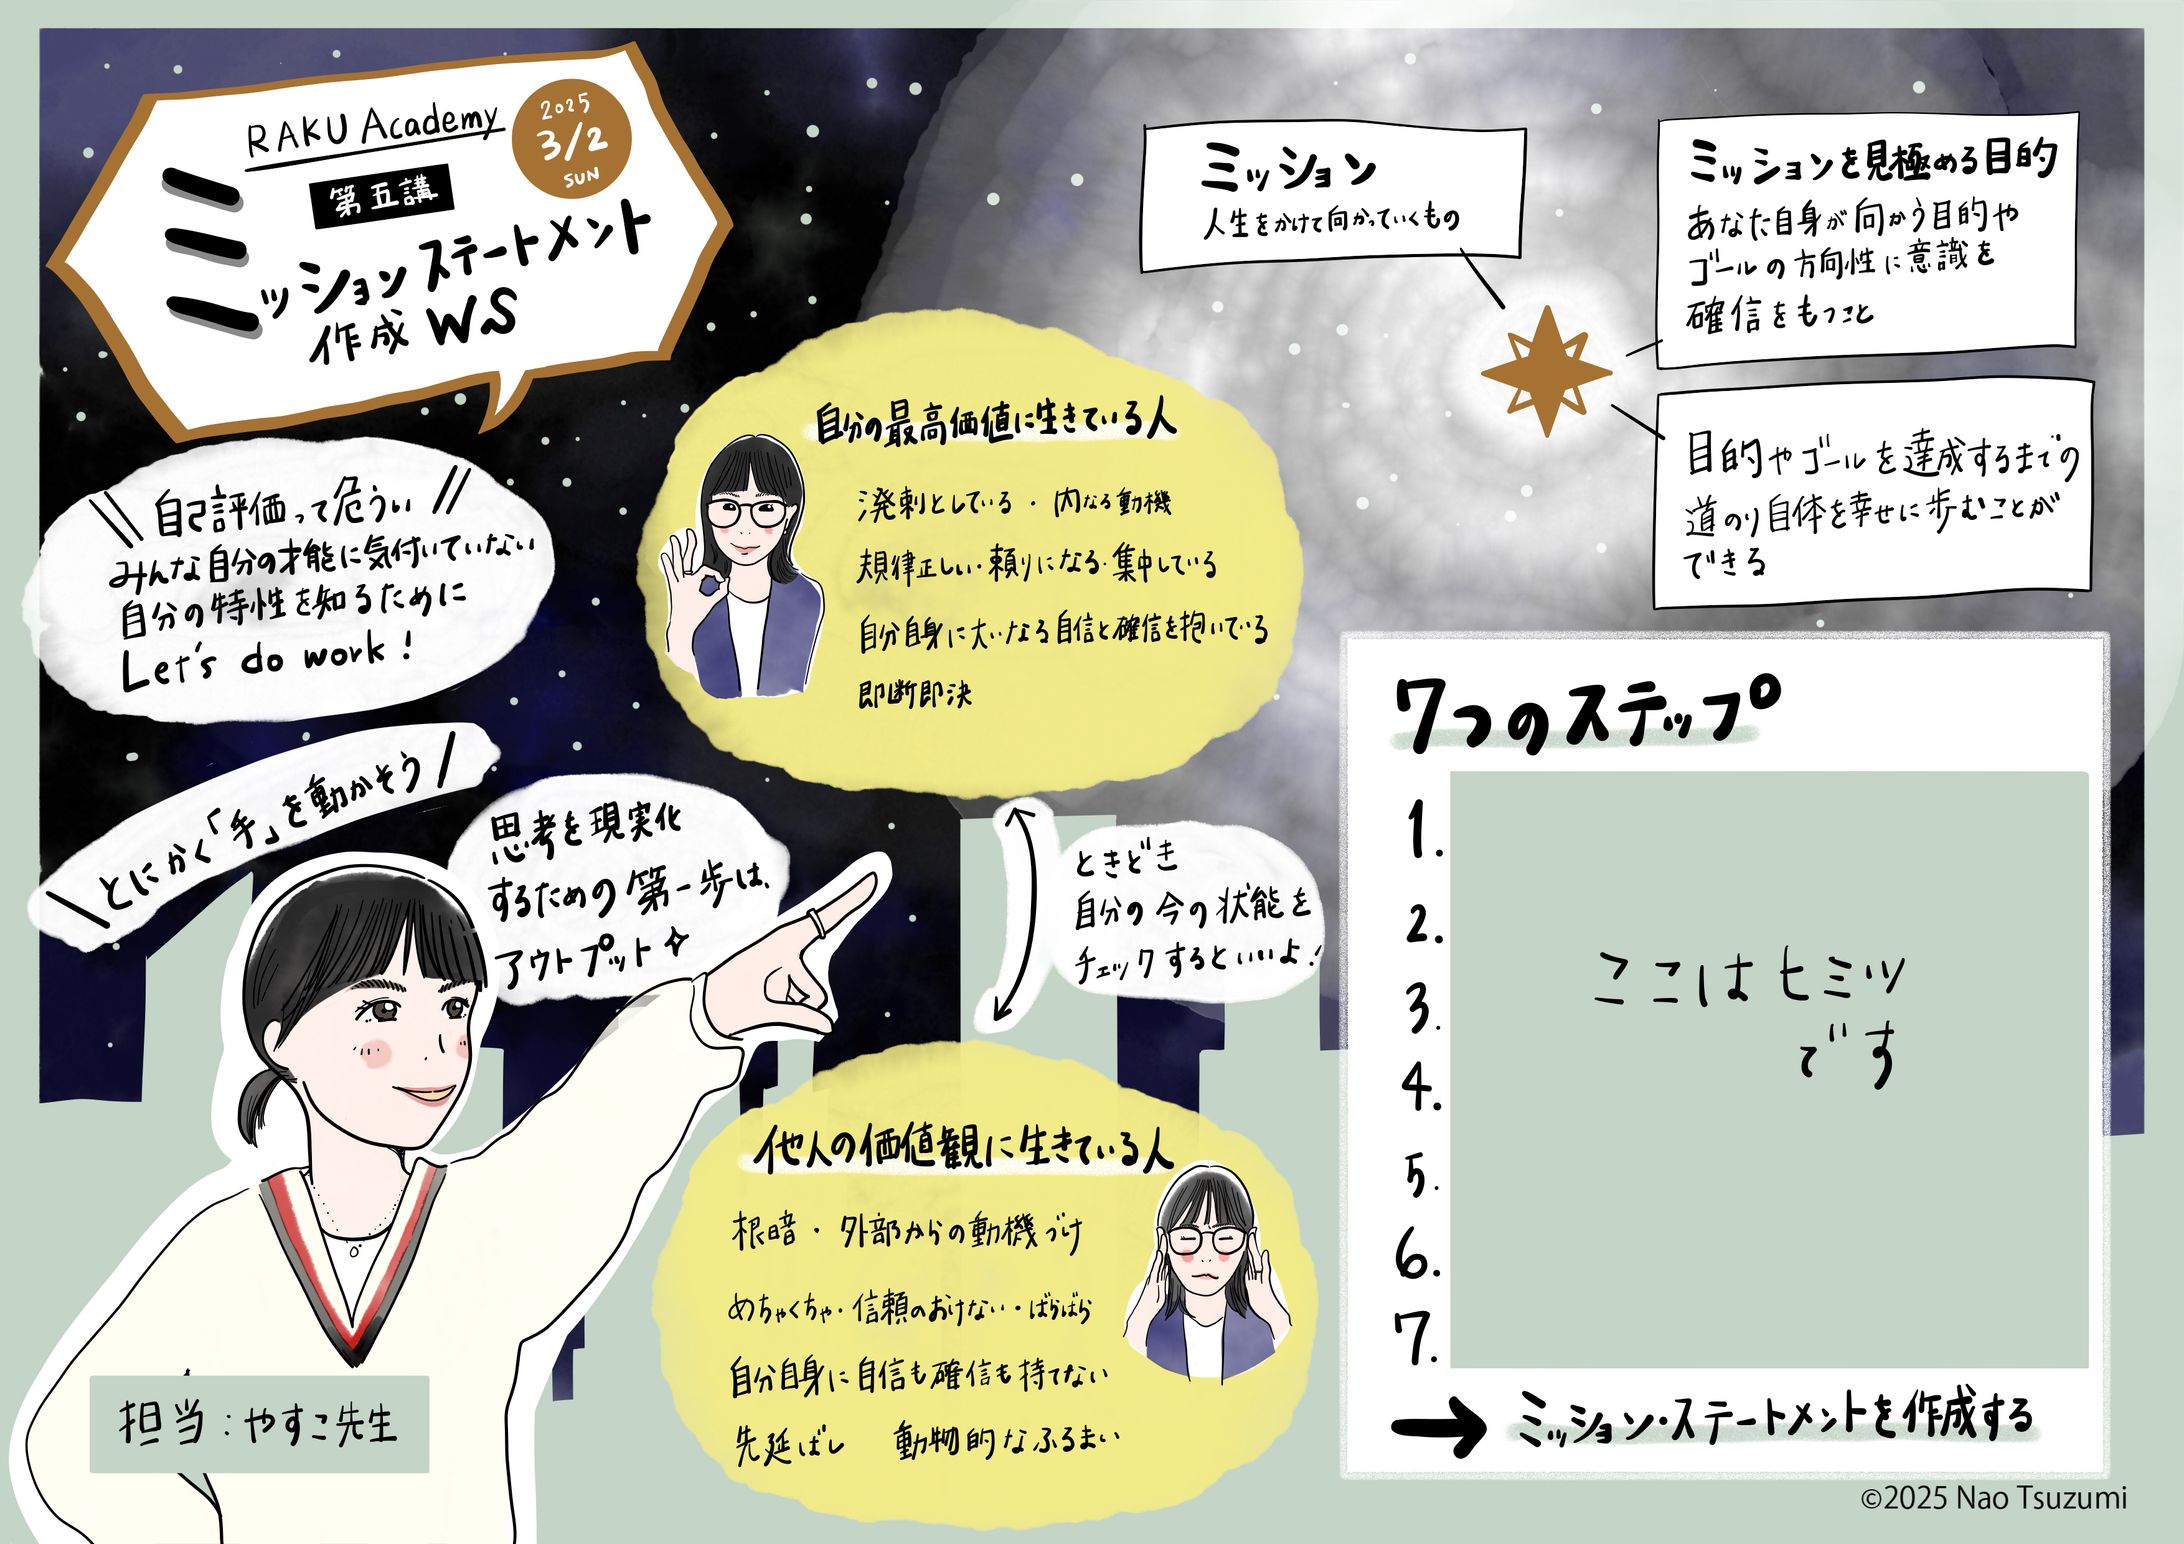 RAKU Academy
2025
3/2
SUN
第五講
ミッションステートメント
作成 WS
自己評価って危うい
みんな自分の才能に気付いていない
自分の特性を知るために
Let's do work!
とにかく「手」を動かそう
思考を現実化
するための第一歩は、
アウトプット
担当:やすこ先生
自分の最高価値に生きている人
溌剌としている・内なる動機
規律正しい・頼りになる・集中している
自分自身に大いなる自信と確信を抱いている
即断即決
ときどき
自分の今の状態を
チェックするといいよ!
他人の価値観に生きている人
根暗・外部からの動機づけ
めちゃくちゃ・信頼のおけない・ばらばら
自分自身に自信も確信も持てない
先延ばし 動物的なふるまい
ミッション
人生をかけて向かっていくもの
ミッションを見極める目的
あなた自身が向かう目的や
ゴールの方向性に意識を
確信をもつこと
目的やゴールを達成するまでの
道のり自体を幸せに歩むことが
できる
7つのステップ
1.
2.
3.
4.
5.
6.
7.
ここはヒミツ
です
→ ミッション・ステートメントを作成する
©2025 Nao Tsuzumi